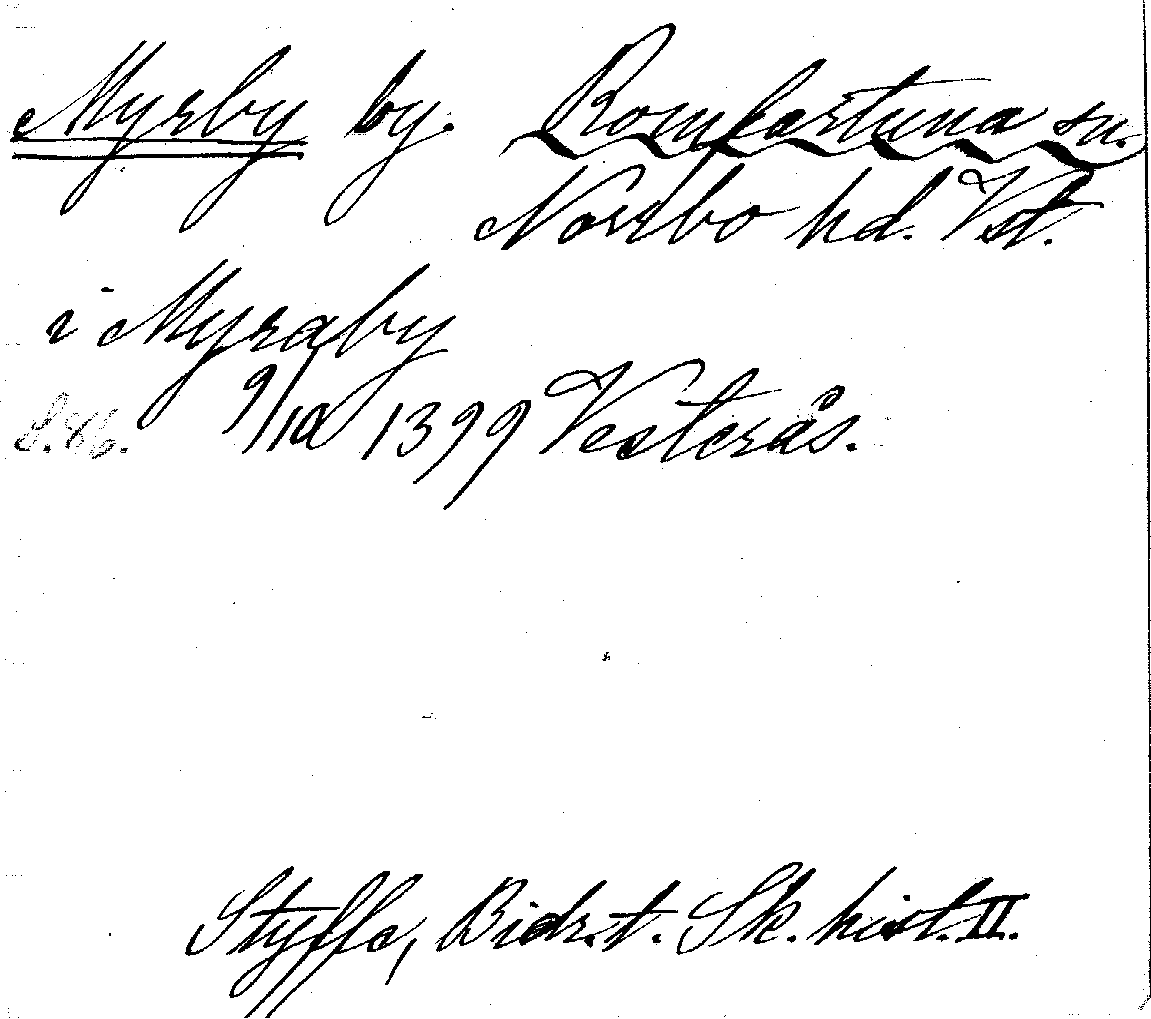 Myrby by. Romfartuna sn.
Norrbo hd. Vst.
i Myraby
S. 86. 9/10 1399 Vesterås.
Styffe, Bidr. t. Sk. hist. II.